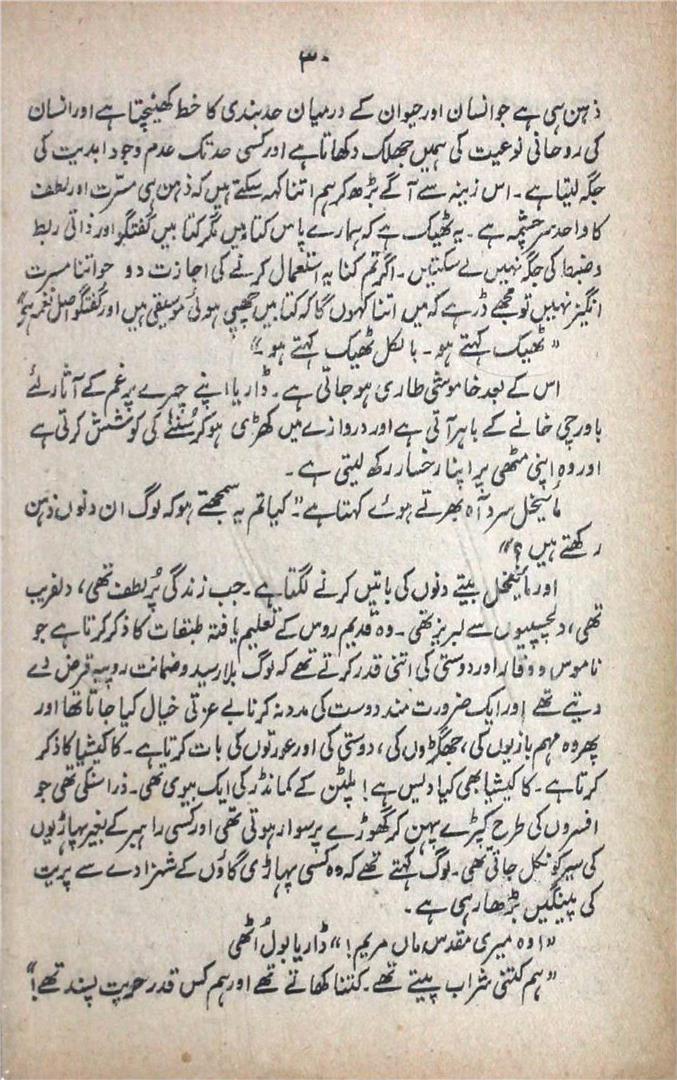 ۳۰
ذہن ہی ہے جو انسان اور حیوان کے درمیان حد بندی کا خط کھینچتا ہے اور انسان
کی روحانی نوعیت کی ہمیں جھلک دکھاتا ہے اور کسی حد تک عدم وجود ابدیت کی
جگہ لیتا ہے۔ اس زینہ سے آگے بڑھ کر ہم اتنا کہہ سکتے ہیں کہ ذہن ہی مسرت اور لطف
کا واحد سرچشمہ ہے۔ یہ ٹھیک ہے کہ ہمارے پاس کتابیں ہیں مگر کتابیں گفتگو اور ذاتی ربط
و ضبط کی جگہ نہیں لے سکتیں۔ اگر تم کنایہ استعمال کرنے کی اجازت دو جو اتنا مسرت
انگیز نہیں تو مجھے ڈر ہے کہ میں اتنا کہوں گا کہ کتابیں چھپی ہوئی موسیقی ہیں اور گفتگو اصل نغمہ ہے“
”ٹھیک کہتے ہو۔ بالکل ٹھیک کہتے ہو۔“
اس کے بعد خاموشی طاری ہو جاتی ہے۔ ڈاریا اپنے چہرے پر غم کے آثار لئے
باورچی خانے کے باہر آتی ہے اور دروازے میں کھڑی ہو کر سننے کی کوشش کرتی ہے
اور وہ اپنی مٹھی پر اپنا رخسار رکھ لیتی ہے۔
مائیخل سرد آہ بھرتے ہوئے کہتا ہے”۔ کیا تم یہ سمجھتے ہو کہ لوگ ان دنوں ذہن
رکھتے ہیں؟“
اور مائیخل بیتے دنوں کی باتیں کرنے لگتا ہے۔ جب زندگی پُر لطف تھی، دلفریب
تھی، دلچسپیوں سے لبریز تھی۔ وہ قدیم روس کے تعلیم یافتہ طبقات کا ذکر کرتا ہے جو
ناموس و وقار اور دوستی کی اتنی قدر کرتے تھے کہ لوگ بلا رسید و ضمانت روپیہ قرض دے
دیتے تھے اور ایک ضرورت مند دوست کی مدد نہ کرنا بے عزتی خیال کیا جاتا تھا اور
پھر وہ مہم بازیوں کی، جھگڑوں کی، دوستی کی اور عورتوں کی بات کرتا ہے۔ کاکیشیا کا ذکر
کرتا ہے۔ کاکیشیا بھی کیا دیس ہے! پلٹن کے کمانڈر کی ایک بیوی تھی۔ ذرا سنکی تھی جو
افسروں کی طرح کپڑے پہن کر گھوڑے پر سوار ہوتی تھی اور کسی راہبر کے بغیر پہاڑیوں
کی سیر کو نکل جاتی تھی۔ لوگ کہتے تھے کہ وہ کسی پہاڑی گاؤں کے شہزادے سے پریت
کی پینگیں بڑھا رہی ہے۔
”اوہ میری مقدس ماں مریم!“ ڈاریا بول اُٹھی
”ہم کتنی شراب پیتے تھے۔ کتنا کھاتے تھے اور ہم کس قدر حریت پسند تھے!“